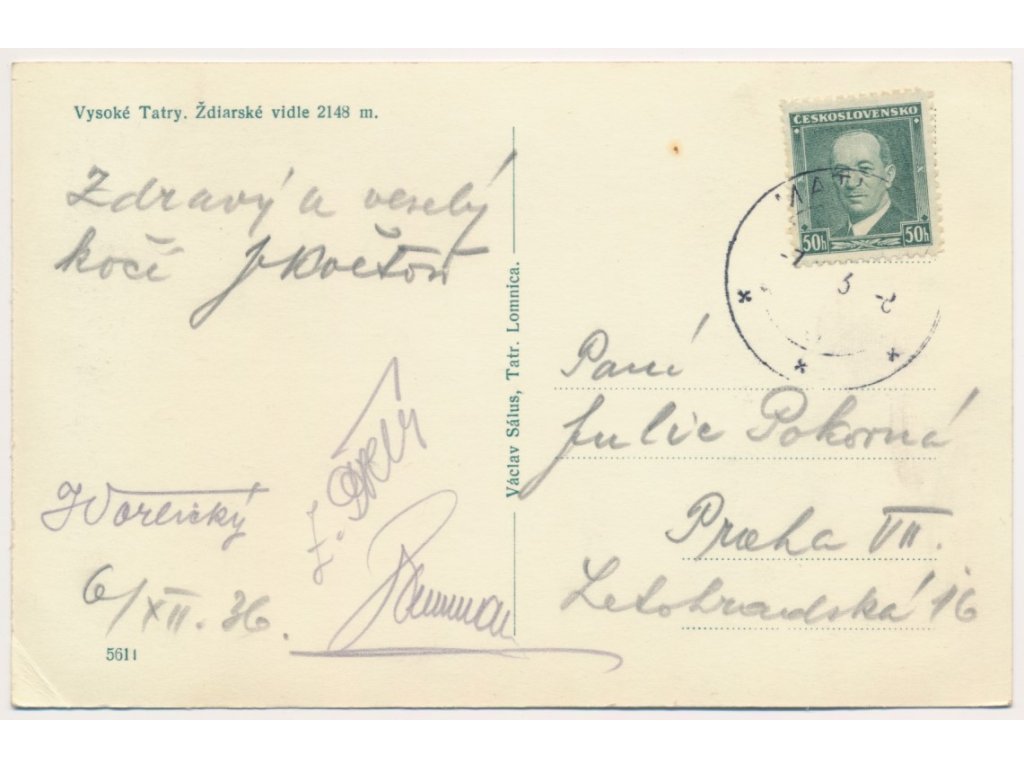 Vysoké Tatry. Ždiarské vidle 2148 m.
Zdravý a veselý
kočí JKvěton
Z. Bílý
JVorlický
6/XII. 36.
5611
Václav Sálus, Tatr. Lomnica.
ČESKOSLOVENSKO
50h 50h
Paní
Julie Pokorná
Praha VII.
Letohradská 16